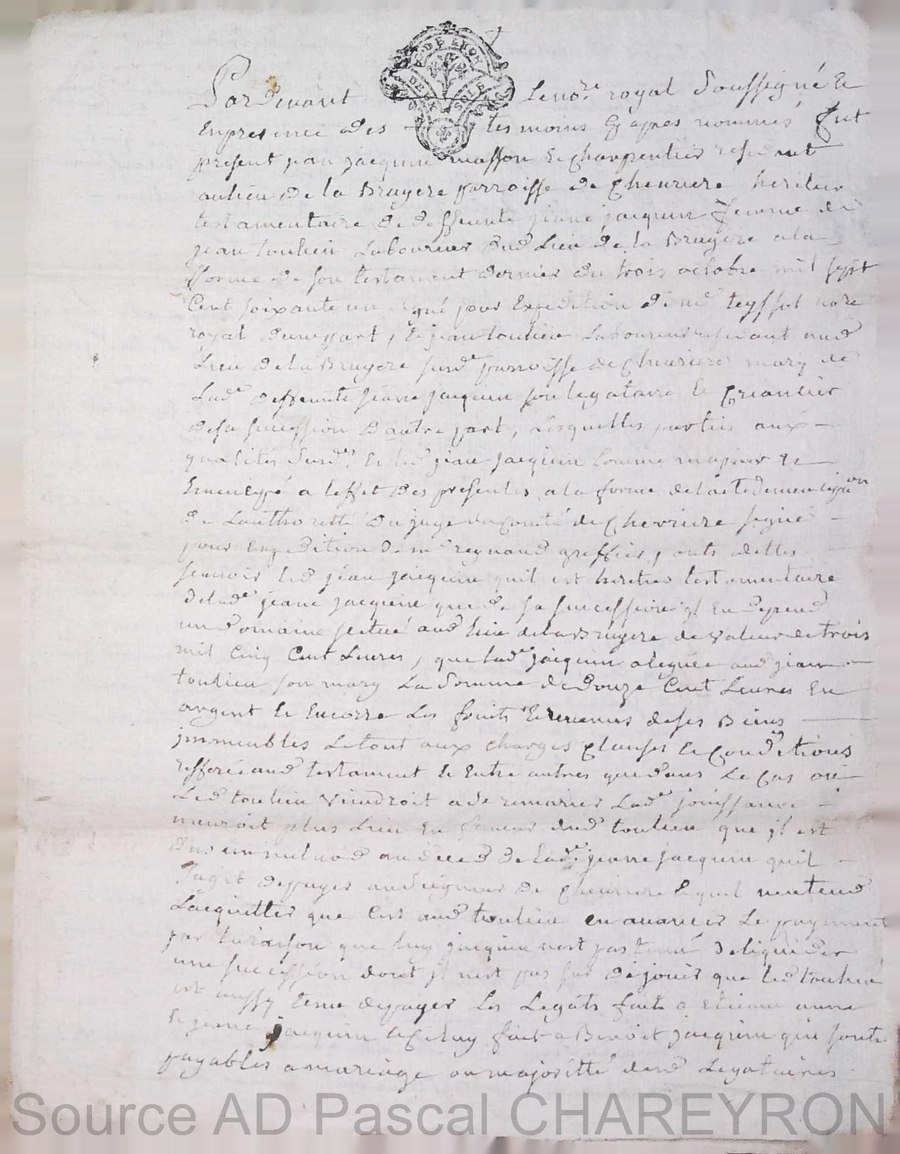 Pardevant Le no.re royal soussigné Et
DE LYON
DEUX SOLS
En presence des tesmoins cy apres nommés fut
present jean jacquin masson Et charpentier residant
au lieu de la Bruyere parroisse de chevriere heritier
testamentaire de deffeunte jeane jacquin femme de
jean toulieu Laboureur aud Lieu de la Bruyere a la
forme de son testament dernier du trois octobre mil sept
Cent soixante un signé pour Expedition de m.e teyssot no.re
royal d'une part, Et jean toulieu Laboureur residant aud
Lieu de la Bruyere susd.e parroisse de chevriere mary de
Lad.e deffeunte jeane jacquin son legataire Et
de sa succession D'autre part, Lesquelles parties aux
qualités susd.es Et led jean jacquin Comme majeur Et
a leffet des presentes a la forme de l'acte
de Lauthorité du juge du Comté de Chevriere signé
pour Expedition de m.e reynaud greffier, onts
scavoir led jean jacquin quil est heritier testamentaire
de lad.e jeane jacquin que de sa succession il En depend
un domaine scitué aud lieu de la Bruyere de valeur de trois
mil Cinq Cent Livres, que lad.e jacquin a leguée aud jean
toulieu son mary La somme de Douze Cent Livres En
argent Et Encorre Les fruits Et revenus de ses Biens
immeubles Le tout aux charges Clauses Et Conditions
refferés aud testament Et Entre autres que dans Le Cas ou
Led toulieu viendroit a se remarier Lad.e jouissance
n'auroit plus Lieu En faveur dud toulieu que il est
au deced de lad.e jeane jacquin quil
s'agit de payer au seigneur de chevriere Et quil n'entend
Lacquitter que Cest aud toulieu en avancer Le payement
par la raison que luy jacquin n'est pas tenué de liquider
une succession dont il n'est pas de jouir que led toulieu
est aussy tenu de payer Les Legats fait a Etienne anne
Et jeane jacquin Et celuy fait a Benoit jacquin qui sonts
payables a mariage ou majoritté desd Legataires
Source AD Pascal CHAREYRON